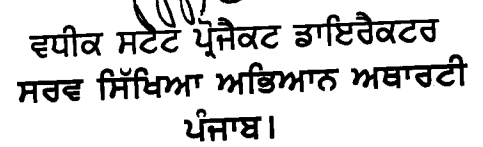 ਵਧੀਕ ਸਟੇਟ ਪ੍ਰੋਜੈਕਟ ਡਾਇਰੈਕਟਰ
ਸਰਵ ਸਿੱਖਿਆ ਅਭਿਆਨ ਅਥਾਰਟੀ
ਪੰਜਾਬ।